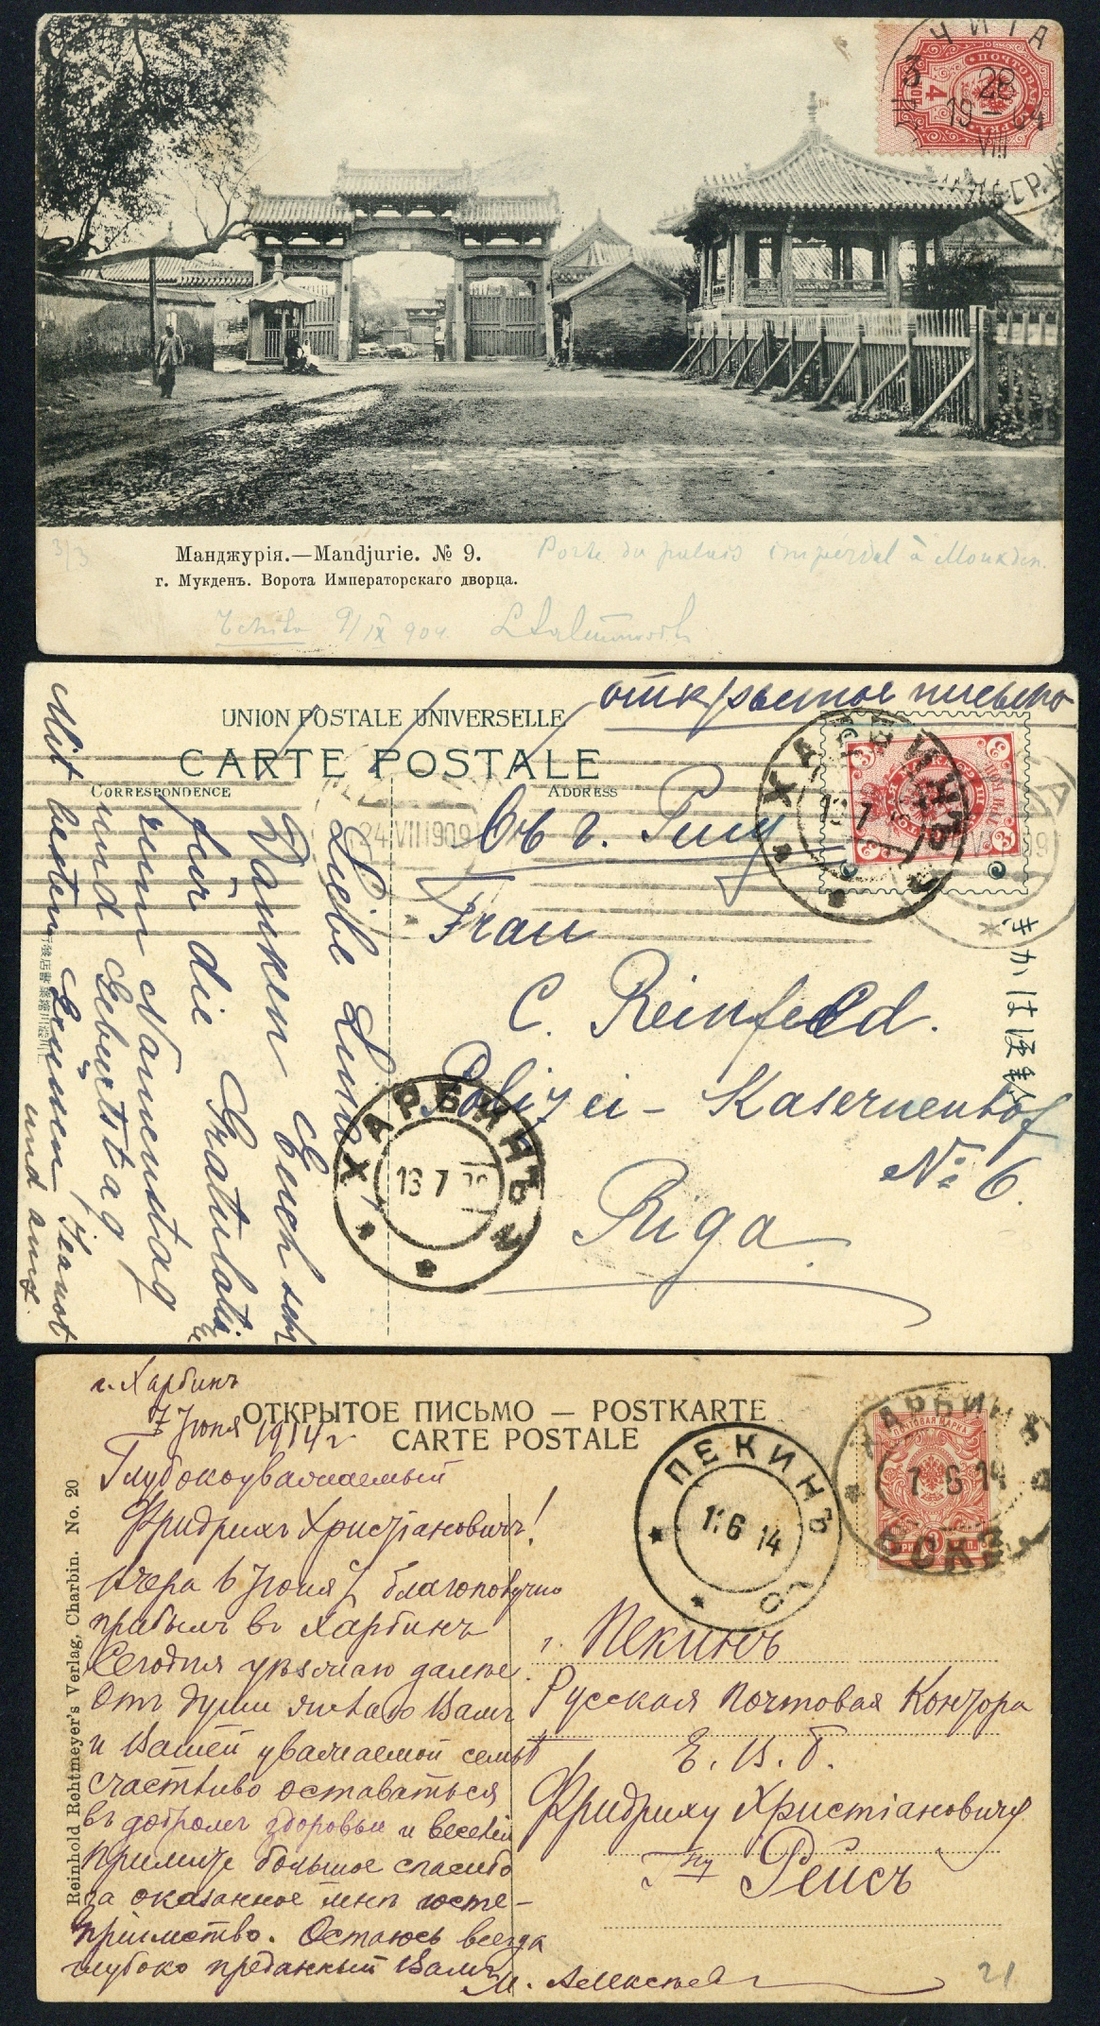 ЧИТА
28
19 — 04
VIII
ПОЧТОВАЯ МАРКА
4
3/3
Манджурія.—Mandjurie. № 9.
г. Мукденъ. Ворота Императорскаго дворца.
Porte du palais impérial à Moukden.
9/IX 904.
открытое письмо
UNION POSTALE UNIVERSELLE
CARTE POSTALE
CORRESPONDENCE
ADDRESS
24 VII 1909
ХАРБИНЪ
13 7
3
Въ г. Ригу
Frau
C. Reinfeld.
Polizei-Kasernenhof
№ 6.
Riga
きかは便郵
ХАРБИНЪ
13 7
Liebe Lina,
Danken Euch sehr
für die Gratulation
zum Namenstag
und Geburtstag
Mit besten Grüssen,
und auch
г. Харбинъ
7 Іюня 1914 г.
ОТКРЫТОЕ ПИСЬМО — POSTKARTE
CARTE POSTALE
Глубокоуважаемый
Фридрихъ Христіановичъ!
Вчера 6 Іюня благополучно
прибылъ въ Харбинъ
Сегодня уѣзжаю далѣе.
Отъ души желаю Вамъ
и Вашей уважаемой семьѣ
счастливо оставаться
въ добромъ здоровьи и веселіи
Примите большое спасибо
за оказанное мнѣ госте-
пріимство. Остаюсь всегда
глубоко преданный Вамъ
Reinhold Rehtmeyer's Verlag, Charbin. No. 20
ПЕКИНЪ
6 14
ХАРБИНЪ
7 6 14
ПОЧТОВАЯ МАРКА
г. Пекинъ
Русская Почтовая Контора
Е. В. Б.
Фридриху Христіановичу
Г-ну Рейсъ
21